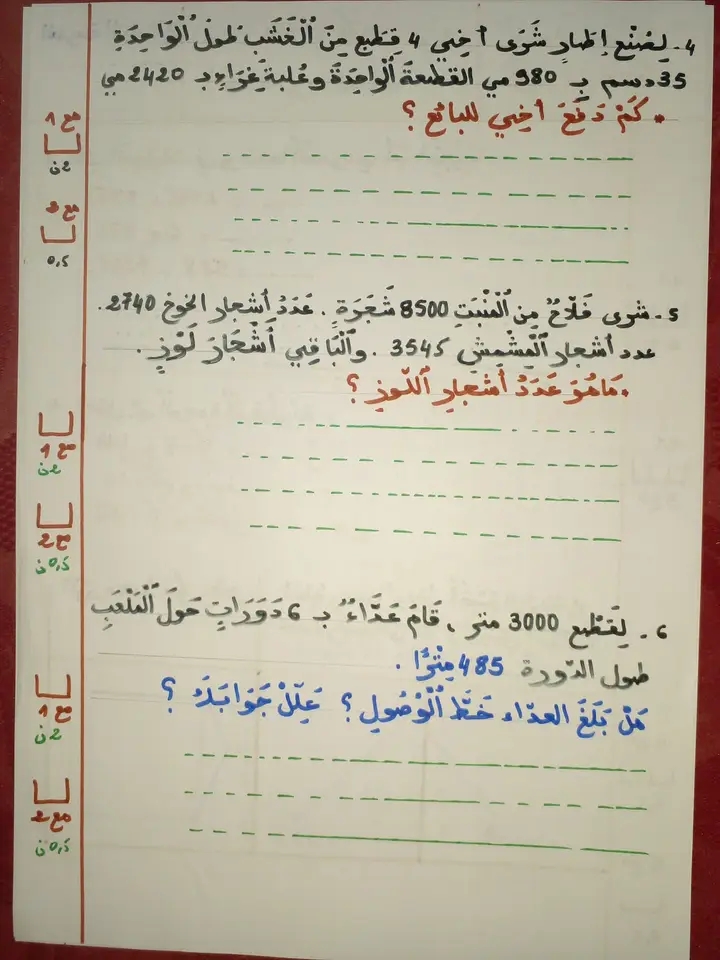 4- لِصُنْعِ إطارٍ شَرَى أخِي 4 قِطَعٍ مِنَ الْخَشَبِ طُولُ الْوَاحِدَةِ
35 دسم بـِ 980 مي القطعةُ الْوَاحِدَةُ وعُلبةَ غِرَاءٍ بـ 2420 مي
• كَمْ دَفَعَ أخِي للبائع ؟
مع 1
2ن
مع 2
0,5
5- شرى فَلّاحٌ مِن الْمَنْبَتِ 8500 شَجَرَةٍ . عَدَدُ أشجار الخوخ 2740 .
عدد أشجار الْمِشْمِش 3545 . والْبَاقِي أَشْجَارَ لَوْزٍ .
• مَاهُوَ عَدَدُ أشجارِ اللّوزِ ؟
مع 1
2ن
مع 2
0,5ن
6- لِقَطْعِ 3000 متر ، قَامَ عَدَّاءٌ بـ 6 دَوَرَاتٍ حَوْلَ الْمَلْعَبِ
طول الدّورة 485 مِتْرًا .
هَلْ بَلَغَ العدّاء خَطَّ الْوُصُولِ ؟ عَلِّلْ جَوَابَكَ ؟
مع 1
2ن
مع 2
0,5ن